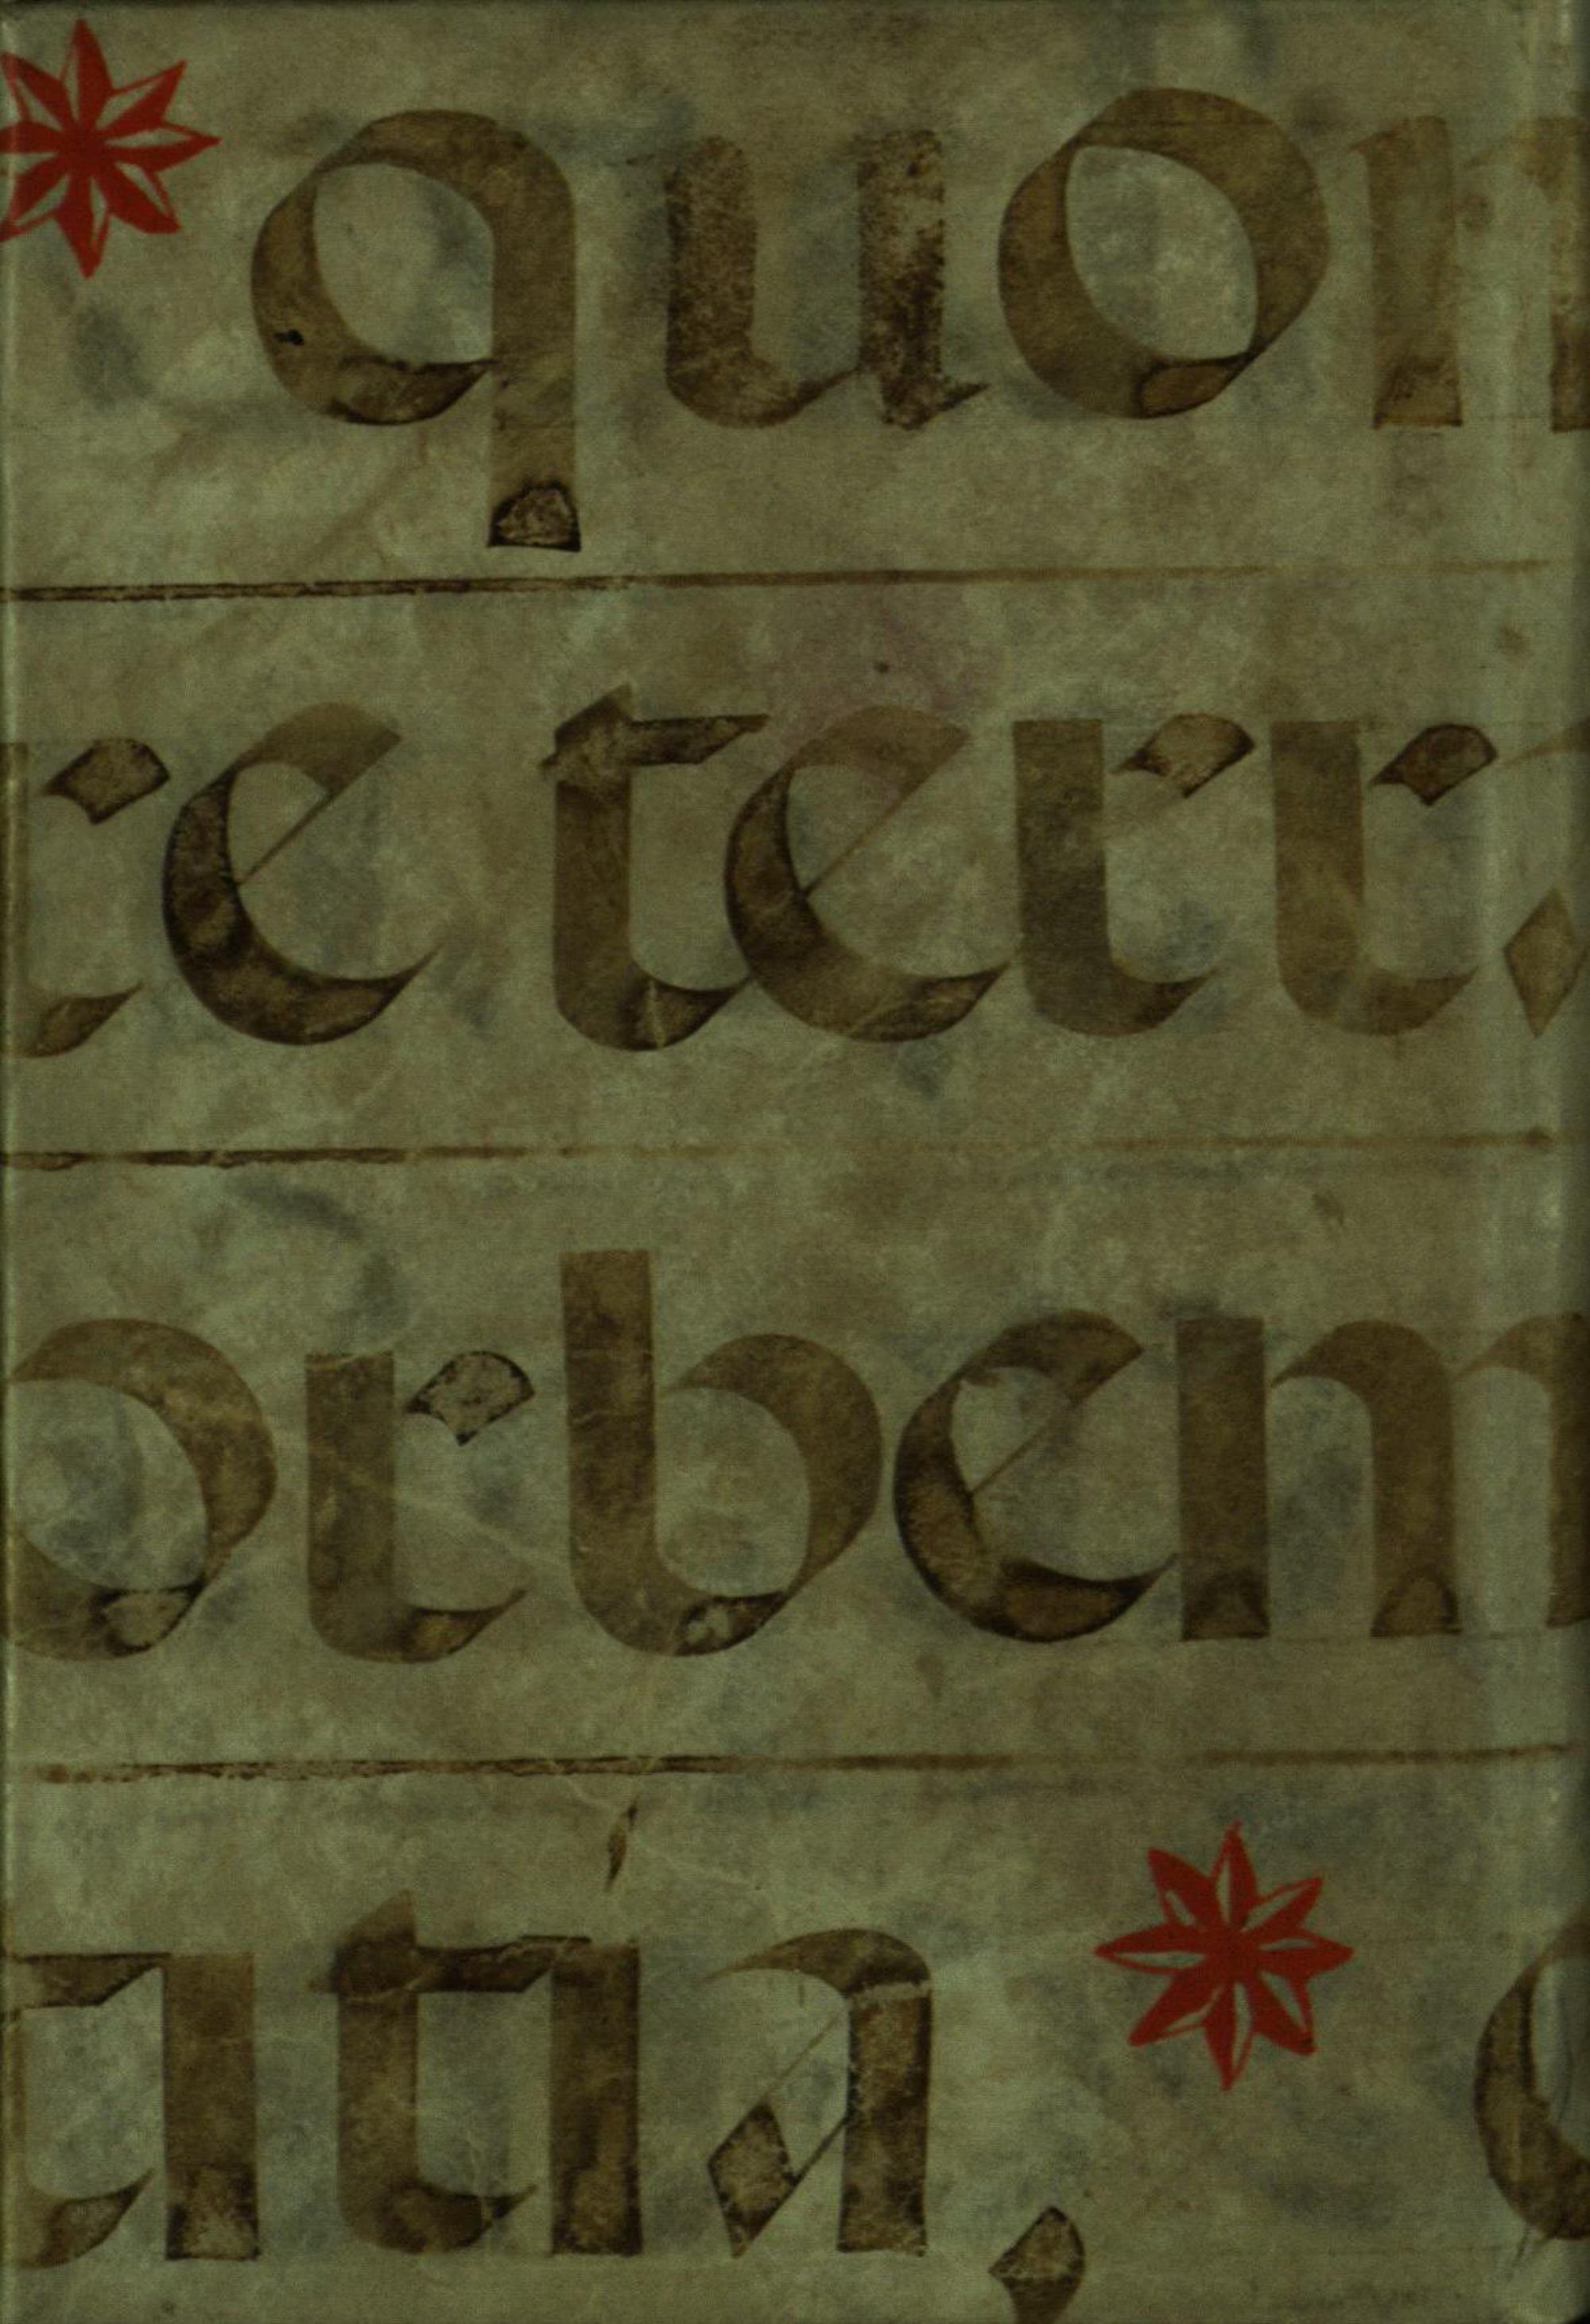 * quon
re terra
orbem
titia, *